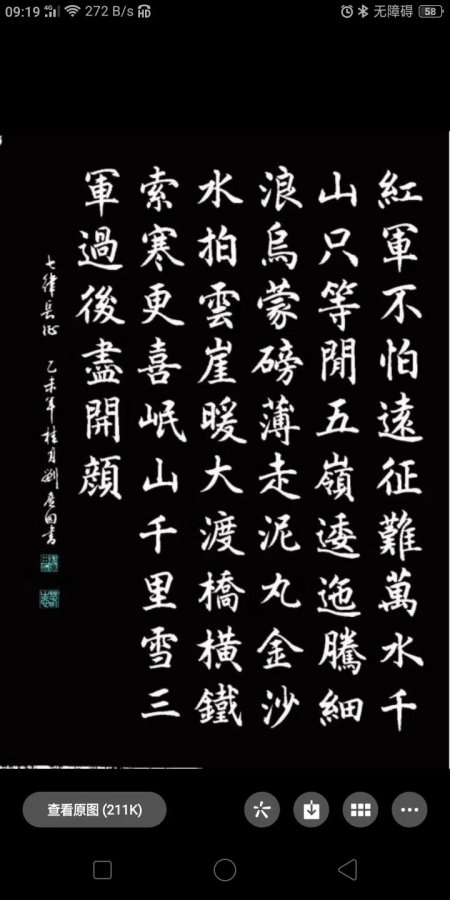 09:19 4G 272 B/s HD 无障碍 58
紅軍不怕遠征難萬水千
山只等閒五嶺逶迤騰細
浪烏蒙磅薄走泥丸金沙
水拍雲崖暖大渡橋橫鐵
索寒更喜岷山千里雪三
軍過後盡開顔
七律長征 乙未年桂月劉書
查看原图 (211K)